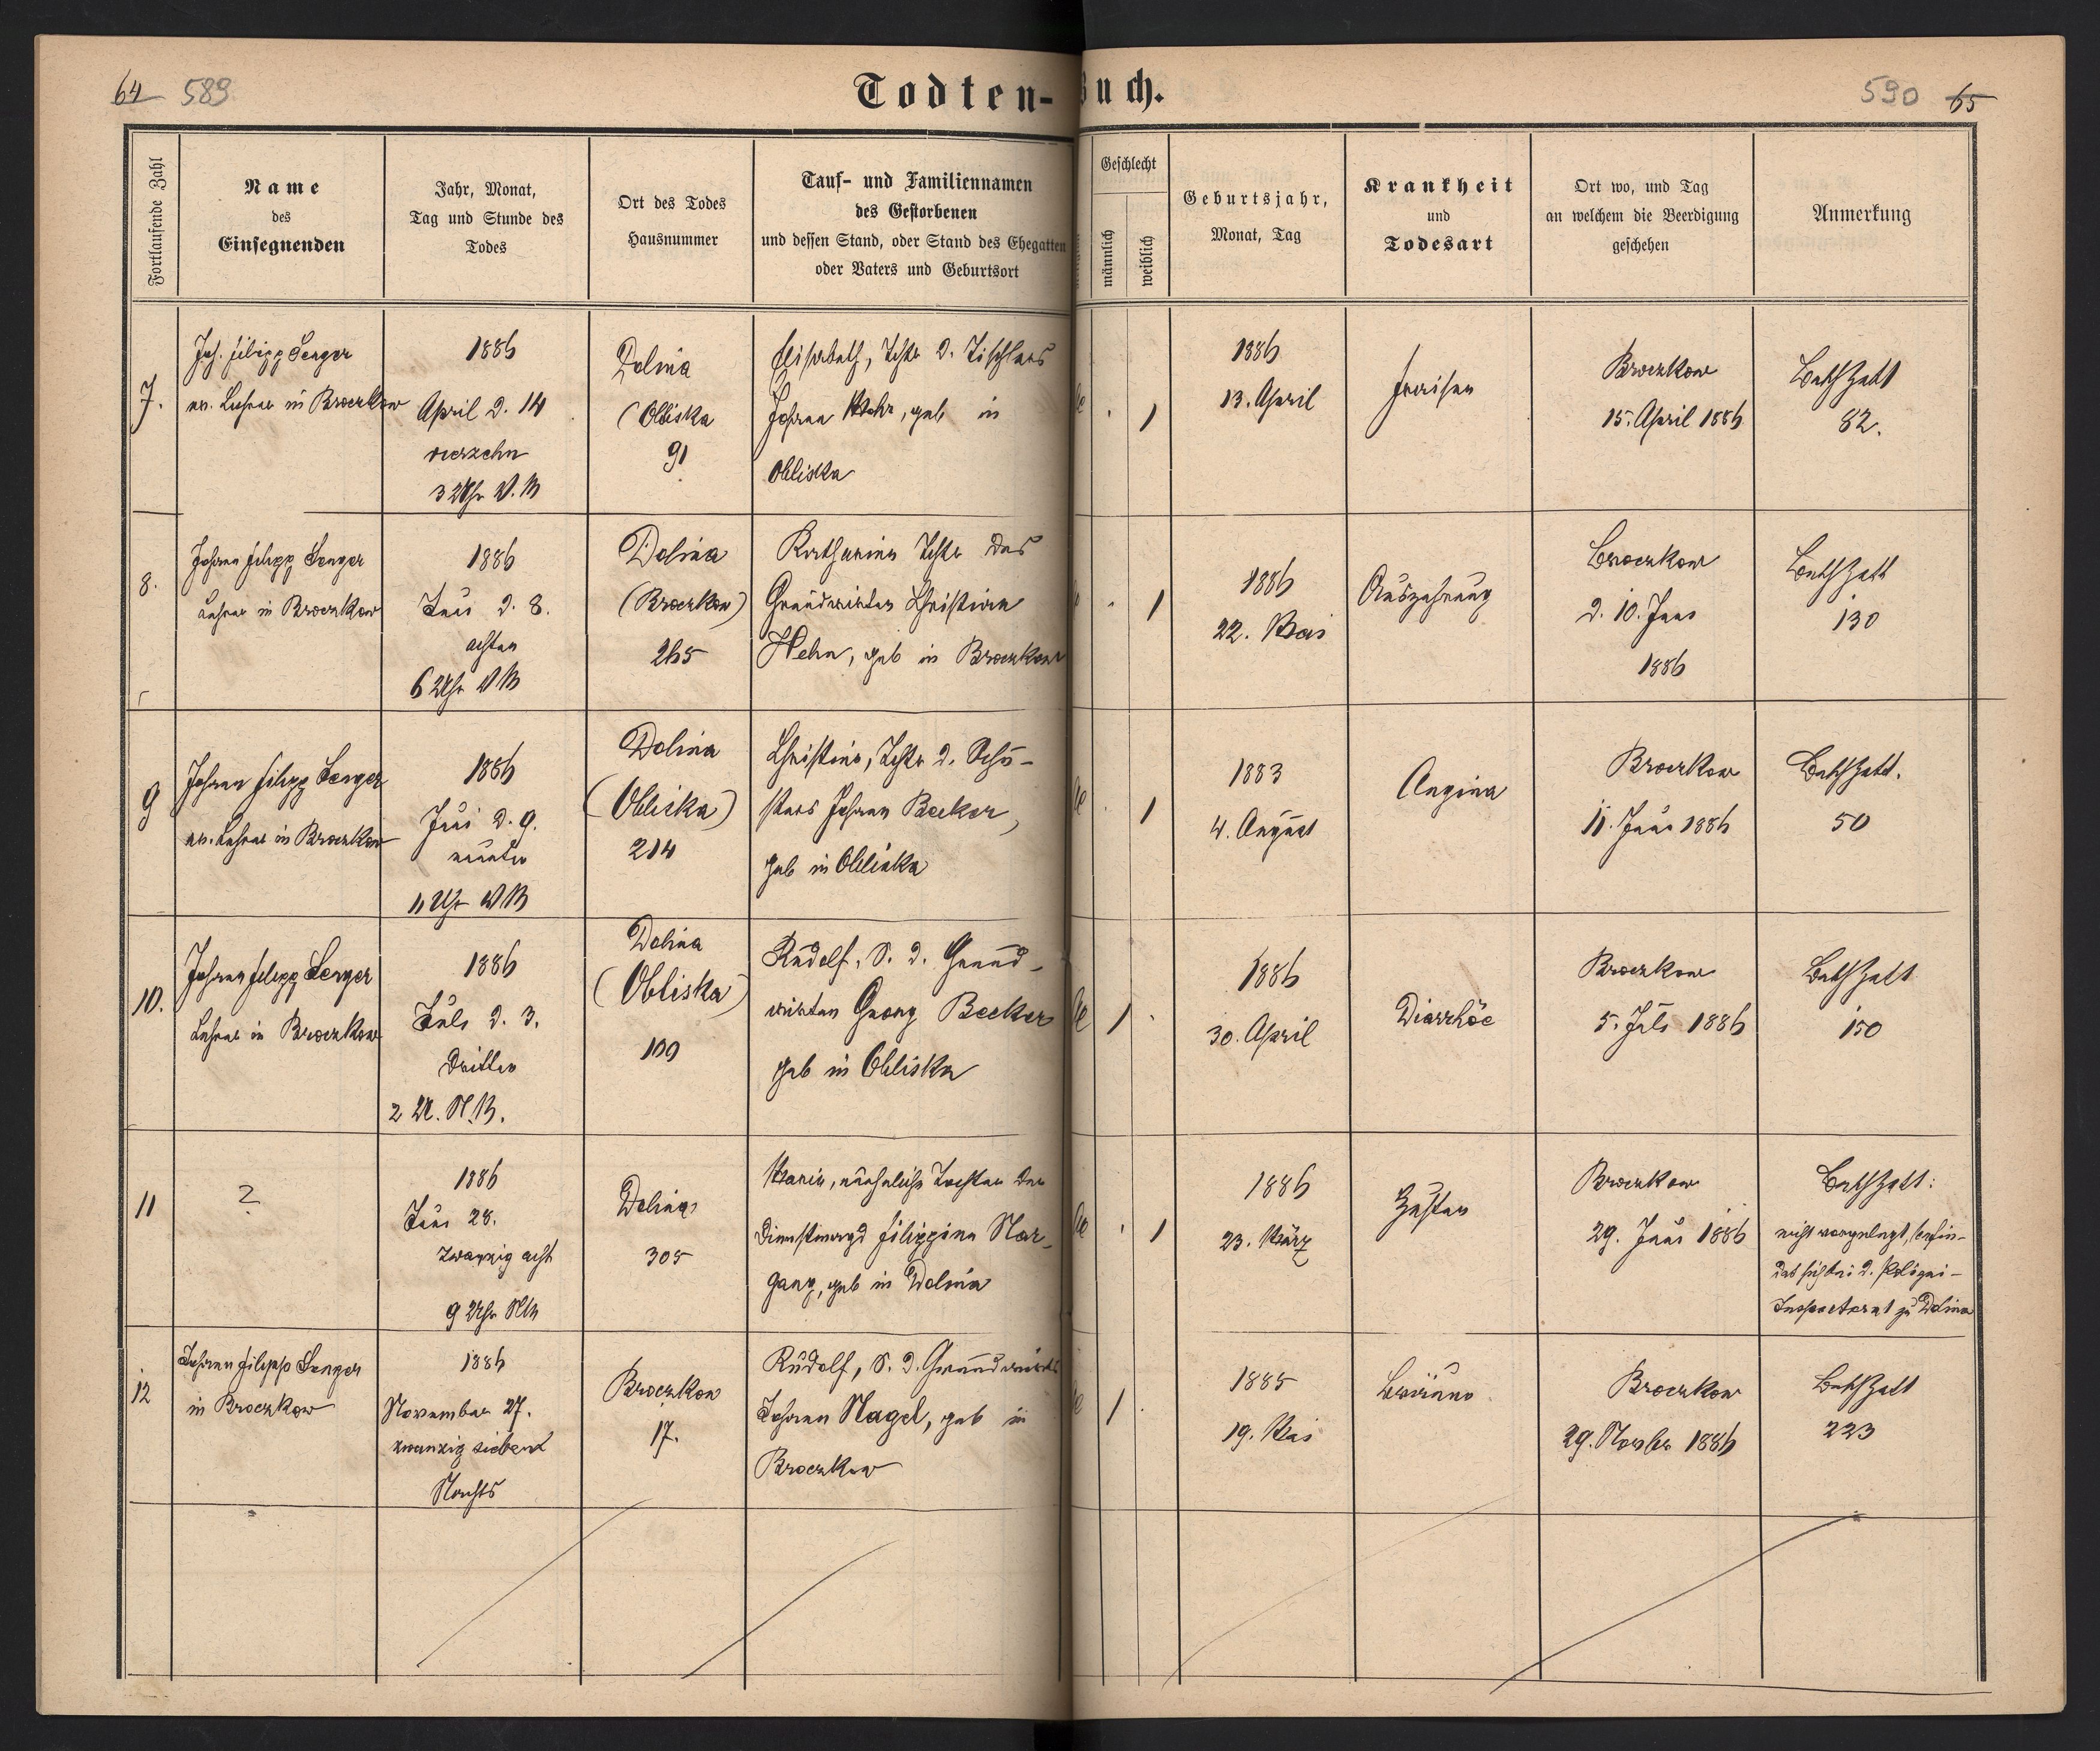 64 589
Todten-Buch.
590 65
Fortlaufende Zahl
Name
des
Einsegnenden
Jahr, Monat,
Tag und Stunde des
Todes
Ort des Todes
Hausnummer
Tauf- und Familiennamen
des Gestorbenen
und dessen Stand, oder Stand des Ehegatten
oder Vaters und Geburtsort
Geschlecht
männlich
weiblich
Geburtsjahr,
Monat, Tag
Krankheit
und
Todesart
Ort wo, und Tag
an welchem die Beerdigung
geschehen
Anmerkung
7.
Joh. Filipp Senger
ev. Lehrer in Broczkow
1886
April d. 14
vierzehn
3 Uhr V.M
Dolina
(Obliska
91
Elisabeth, Tcht. d. Tischlers
Johann Mohr, geb in
Obliska
1
1886
13. April
Fraisen
Broczkow
15. April 1886
BethZett
82.
8.
Johann Filipp Senger
Lehrer in Broczkow
1886
Juni d. 8.
achten
6 Uhr VM
Dolina
(Broczkow)
265
Katharina Tcht. des
Grundwirten Christian
Hehn, geb in Broczkow
1
1886
22. Mai
Auszehrung
Broczkow
d. 10. Juni
1886
BethZett
130
9
Johann Filipp Senger
ev. Lehrer in Broczkow
1886
Juni d. 9.
neunten
11 Uhr VM
Dolina
(Obliska)
214
Christine, Tcht. d. Schu-
sters Johann Becker,
geb in Obliska
1
1883
4. August
Angina
Broczkow
11. Juni 1886
BethZett.
50
10.
Johann Filipp Senger
Lehrer in Broczkow
1886
Juli d. 3.
dritten
2 U. N.M.
Dolina
(Obliska)
100
Rudolf, S. d. Grund-
wirten Georg Becker
geb in Obliska
1
1886
30. April
Diarrhöe
Broczkow
5. Juli 1886
BethZett
150
11
?
1886
Juni 28.
zwanzig acht
9 Uhr NM
Dolina
305
Marie, uneheliche Tochter der
Dienstmagd Filippina Mor-
gang, geb in Dolina
1
1886
23. März
Husten
Broczkow
29. Juni 1886
BethZett:
nicht vorgelegt, befin-
det sich bei d. Polizei-
Inspectorat zu Dolina
12
Johann Filipp Senger
in Broczkow
1886
November 27.
zwanzig siebent
Nachts
Broczkow
17.
Rudolf, S. d. Grundwirts
Johann Nagel, geb in
Broczkow
1
1885
19. Mai
Bräune
Broczkow
29. Novbr 1886
BethZett
223